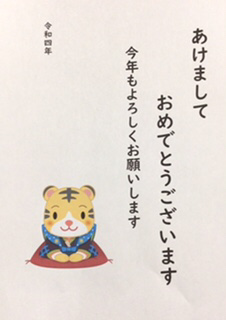 あけまして
おめでとうございます
今年もよろしくお願いします
令和四年